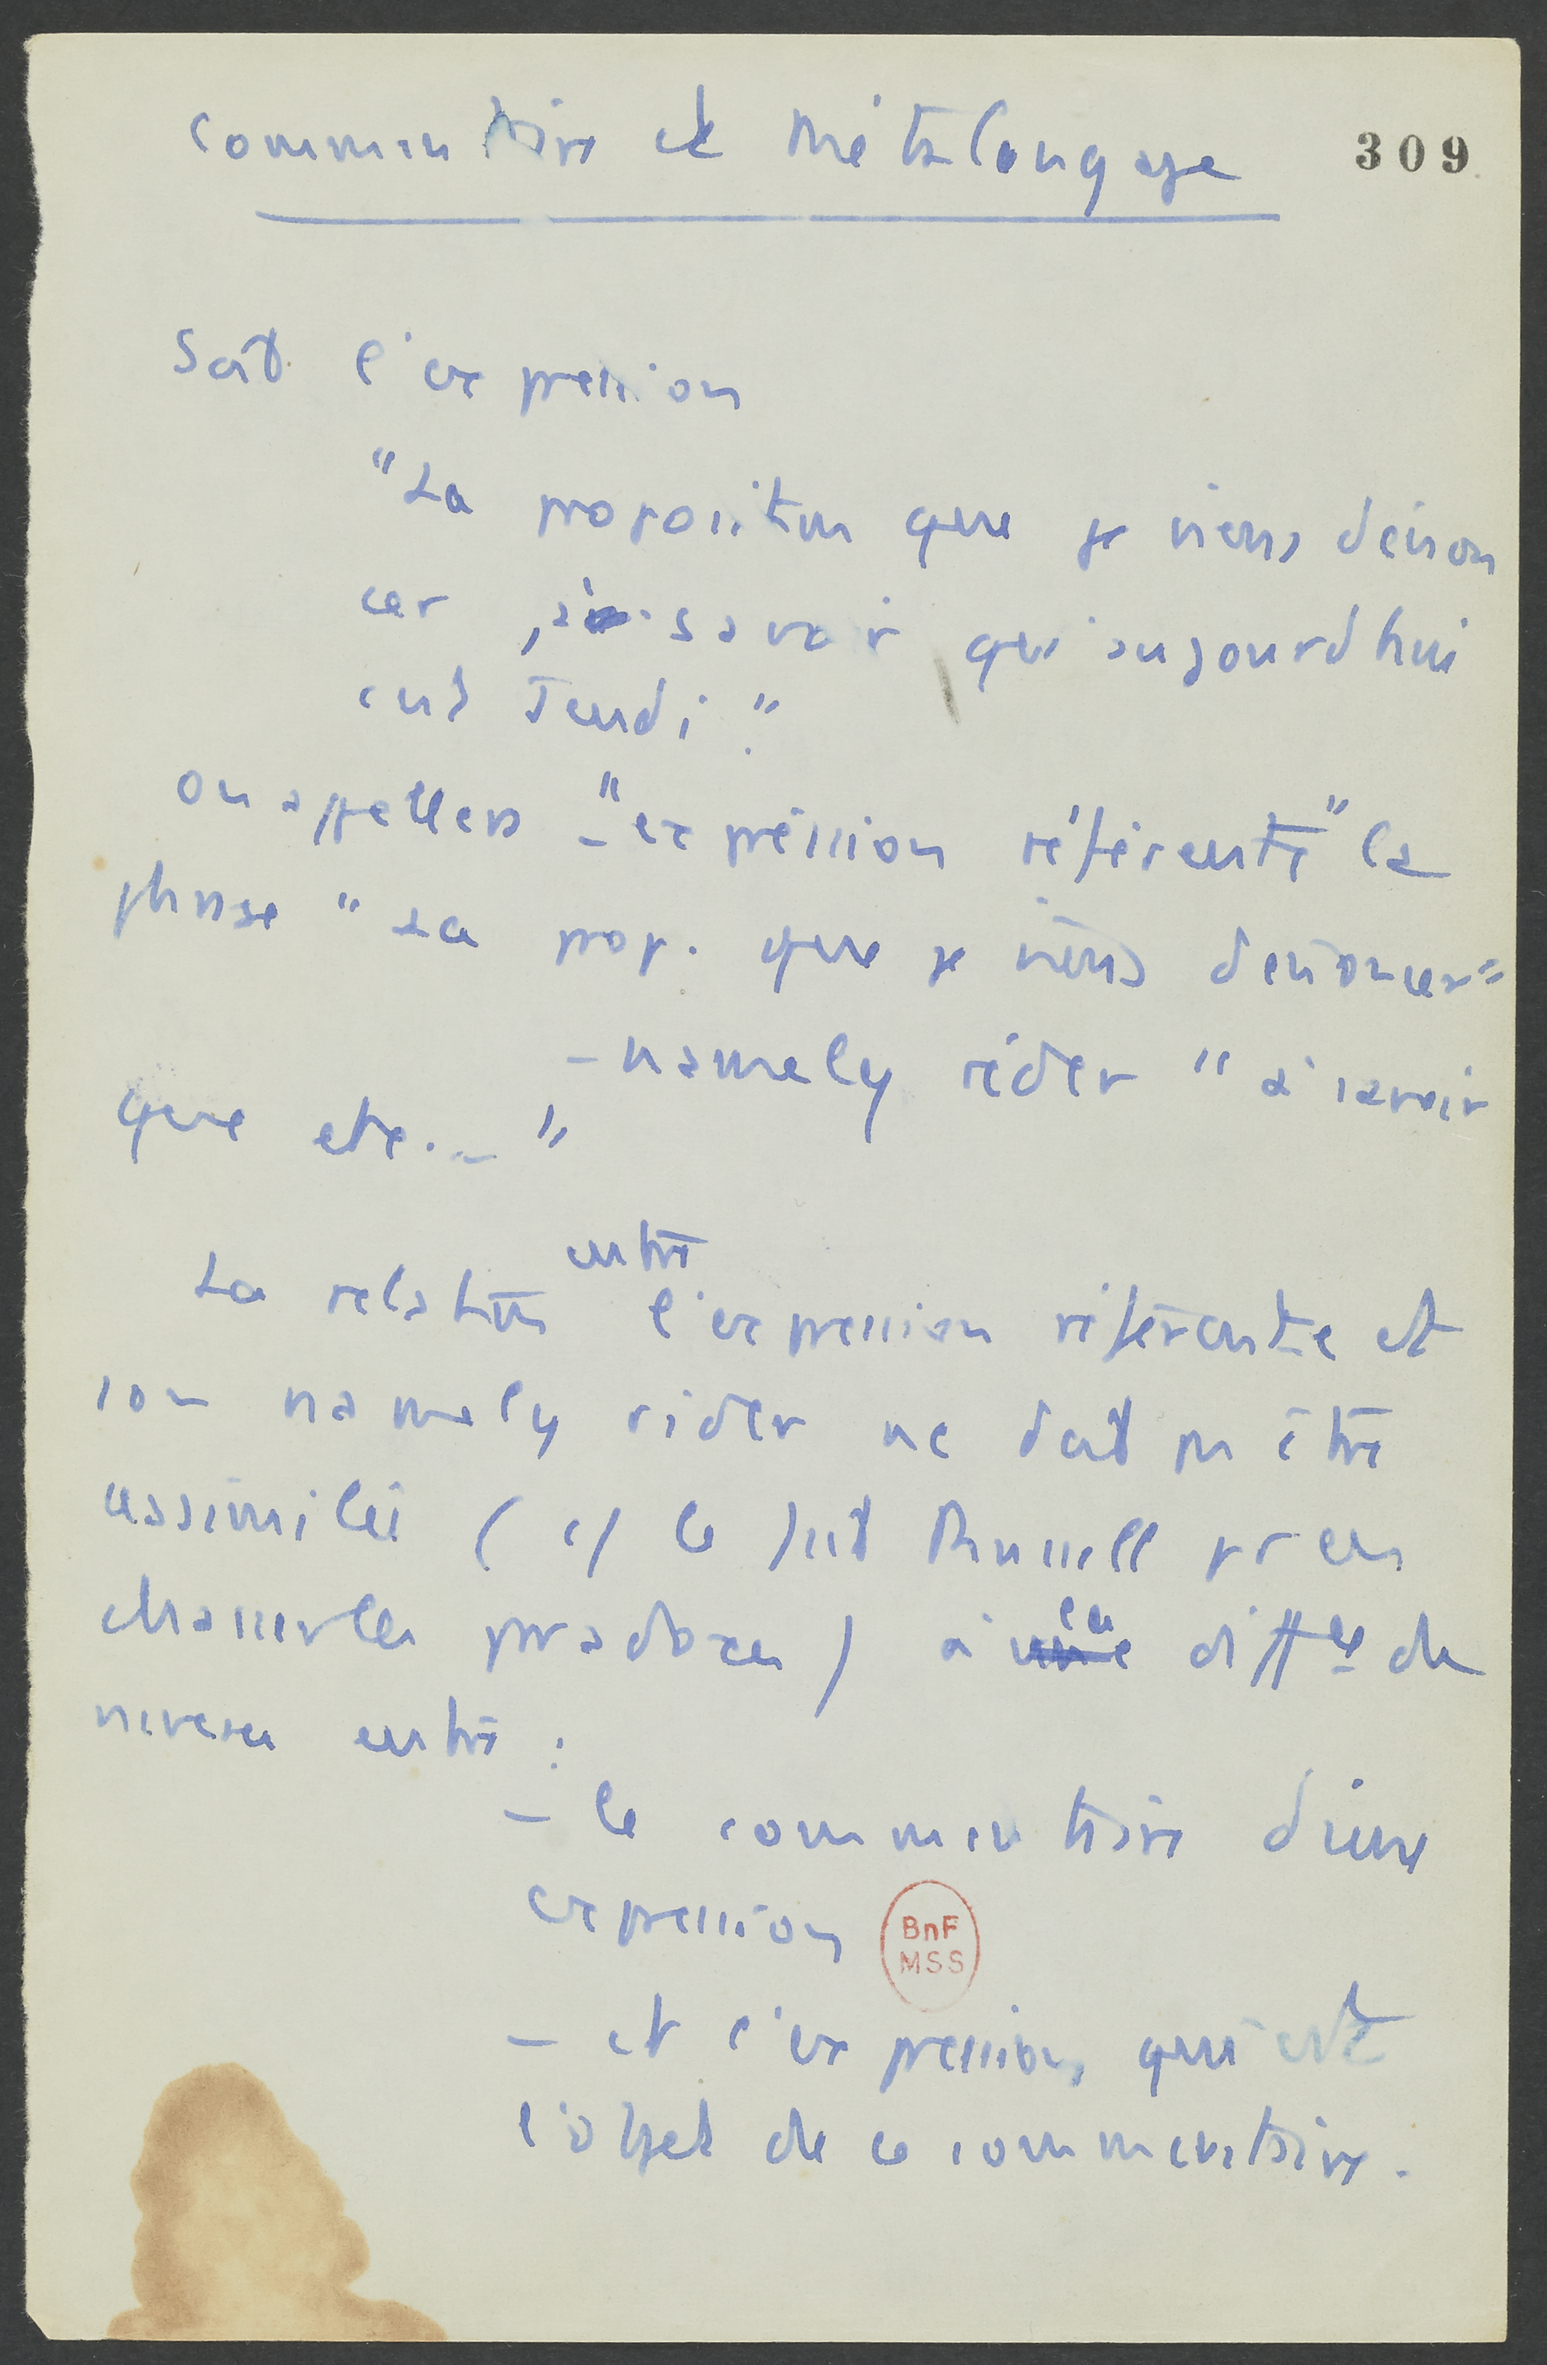 Commentaire et Métalangage
309
Soit l'expression
"La proposition que je viens d'énon
cer, à savoir qu'aujourd'hui
est Jeudi."
On appellera - "expression référente" la
phrase "La prop. que je viens d'énoncer"
- namely rider "à savoir
que etc..."
entre
La relation l'expression référente et
son namely rider ne doit pas être
assimilée (c/ le fait Russell pr les
classes paradoxes) à la diffce de
niveau entre :
- le commentaire d'une
expression
BnF
MSS
- et l'expression qui est
l'objet de ce commentaire.